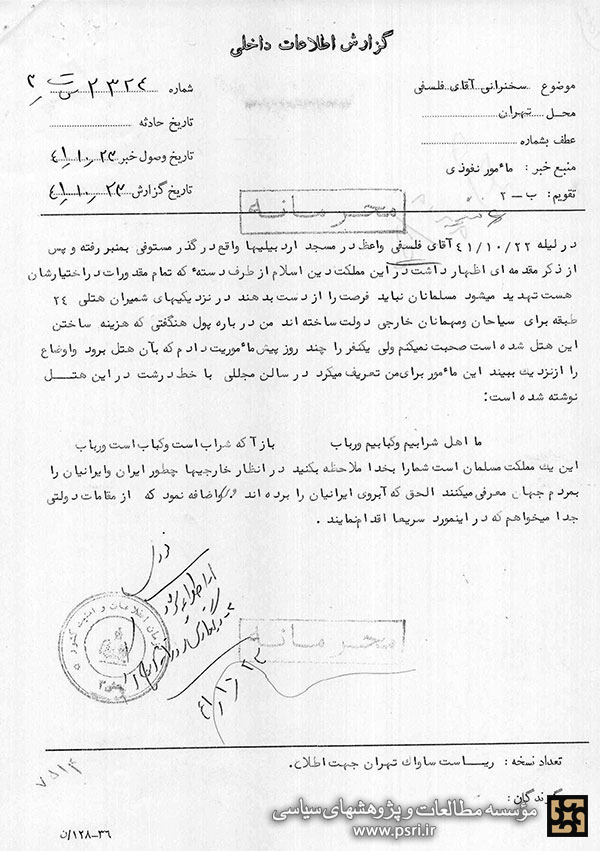 گزارش اطلاعات داخلی
موضوع سخنرانی آقای فلسفی
شماره ۲۳۲۴
محل تهران
تاریخ حادثه
عطف بشماره
تاریخ وصول خبر ۴۱/۱۰/۲۳
منبع خبر : مأمور نفوذی
تاریخ گزارش ۴۱/۱۰/۲۳
تقویم : ب - ۲
محرمانه
در لیله ۴۱/۱۰/۲۲ آقای فلسفی واعظ در مسجد اردبیلیها واقع در گذر مستوفی بمنبر رفته و پس
از ذکر مقدمه ای اظهار داشت در این مملکت دین اسلام از طرف دسته که تمام مقدورات در اختیارشان
هست تهدید میشود مسلمانان نباید فرصت را از دست بدهند در نزدیکیهای شمیران هتلی ۲۴
طبقه برای سیاحان و مهمانان خارجی دولت ساخته اند من درباره پول هنگفتی که هزینه ساختن
این هتل شده است صحبت نمیکنم ولی یکنفر را چند روز پیش مأموریت دادم که بآن هتل برود و اوضاع
را از نزدیک ببیند این مأمور برای من تعریف میکرد در سالن مجللی با خط درشت در این هتل
نوشته شده است :
ما اهل شرابیم و کبابیم و رباب بازآ که شراب است و کباب است و رباب
این یک مملکت مسلمان است شما را بخدا ملاحظه بکنید در انظار خارجیها چطور ایران و ایرانیان را
بمردم جهان معرفی میکنند الحق که آبروی ایرانیان را برده اند اضافه نمود که از مقامات دولتی
جدا میخواهم که در اینمورد سریعا اقدام نمایند .
محرمانه
تعداد نسخه : ریاست ساواک تهران جهت اطلاع.
گیرندگان :
۳۶-۱۲۸/ن
موسسه مطالعات و پژوهشهای سیاسی
www.psri.ir